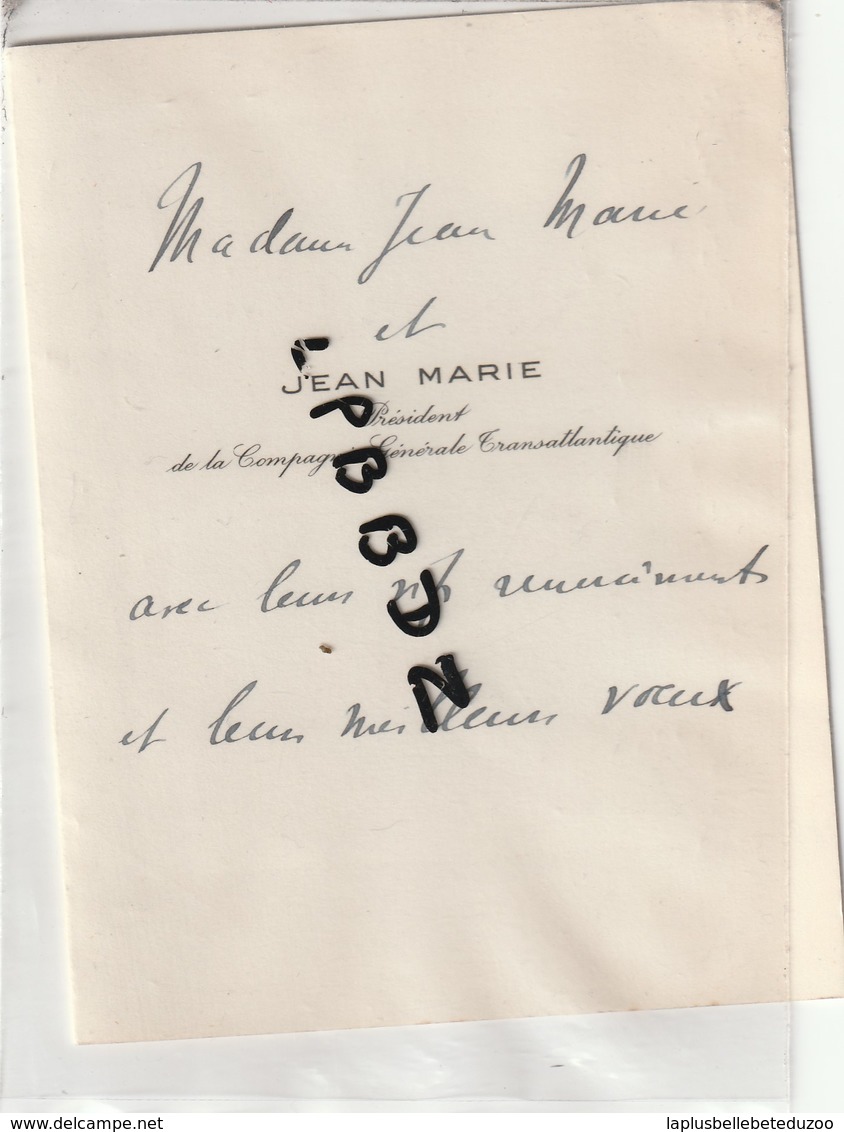 Madame Jean Marie
et
JEAN MARIE
Président
de la Compagnie Générale Transatlantique
avec leurs vifs remerciements
et leurs meilleurs voeux
LPBBDZ
www.delcampe.net
laplusbellebeteduzoo